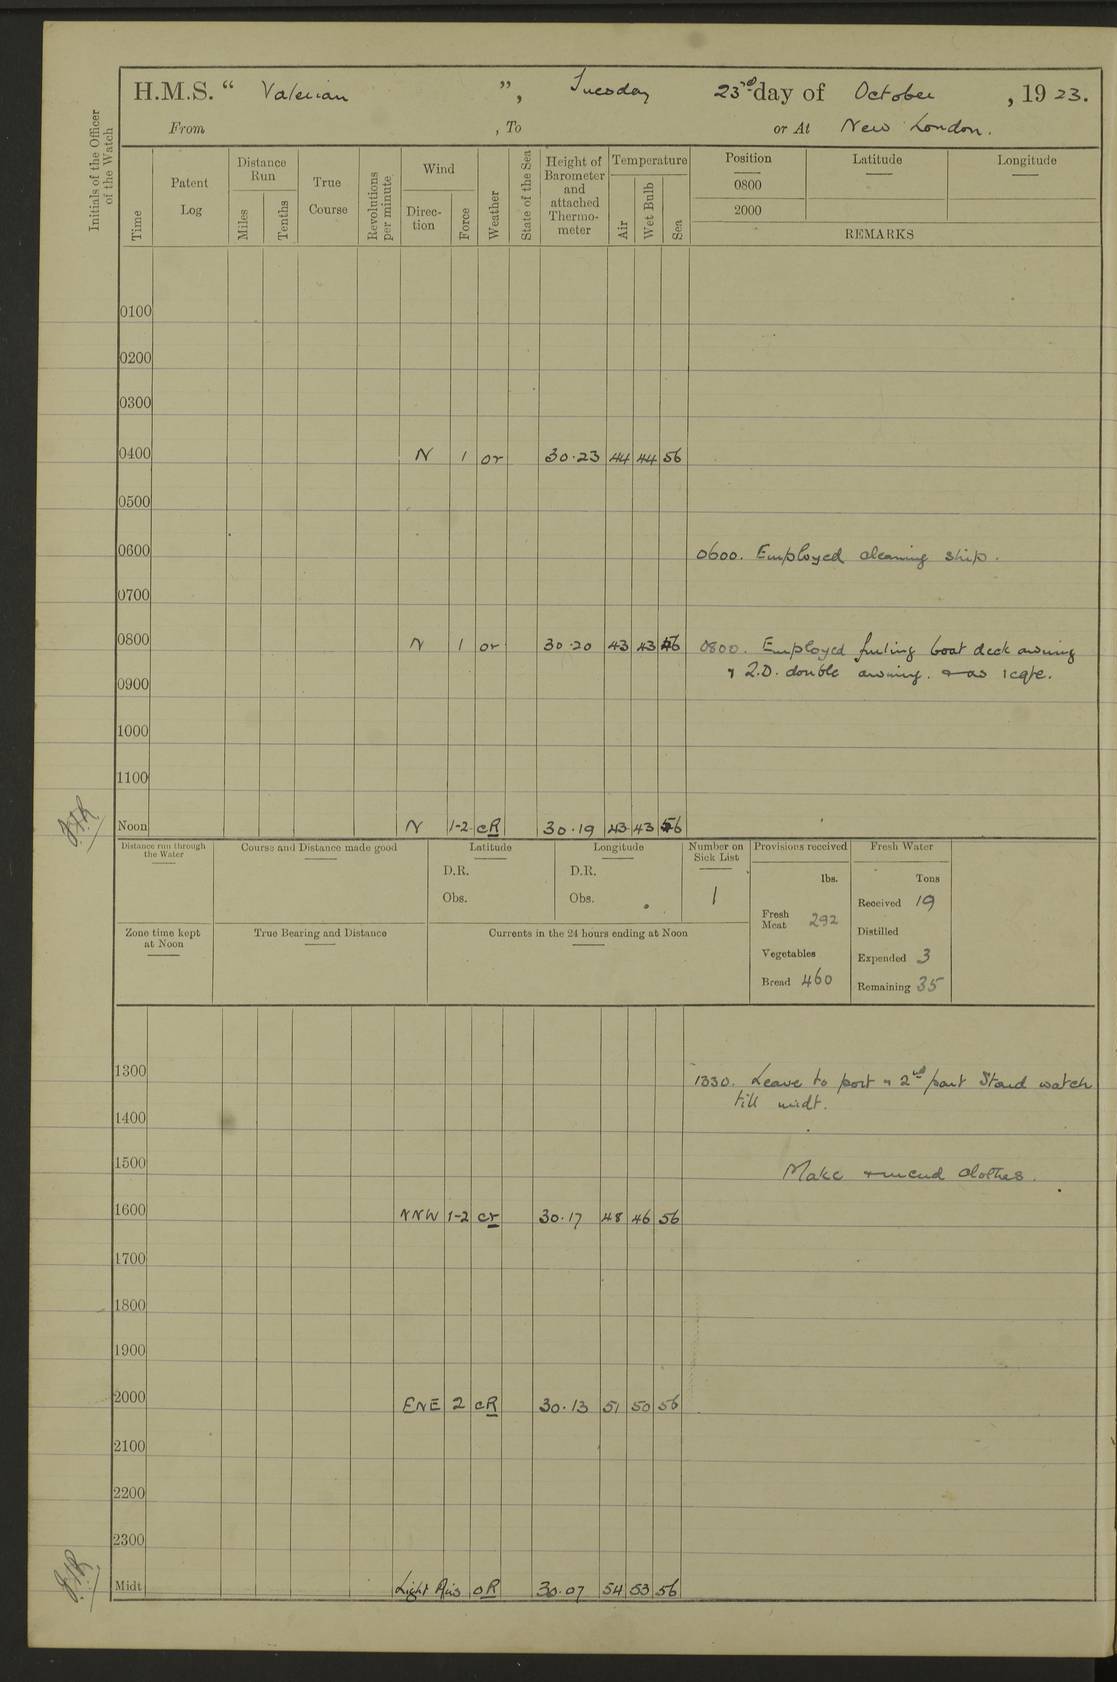 H.M.S. “ Valerian ”, Tuesday 23rd day of October , 1923.
From , To or At New London.
Initials of the Officer of the Watch
Time
Patent Log
Distance Run
Miles
Tenths
True Course
Revolutions per minute
Wind
Direc-tion
Force
Weather
State of the Sea
Height of Barometer and attached Thermo-meter
Temperature
Air
Wet Bulb
Sea
Position Latitude Longitude
0800
2000
REMARKS
0100
0200
0300
0400 N 1 or 30.23 44 44 56
0500
0600 0600. Employed cleaning ship.
0700
0800 N 1 or 30.20 43 43 56 0800. Employed furling boat deck awning
& Q.D. double awning.
0900
1000
1100
Noon N 1-2 cR 30.19 43 43 56
Distance run through the Water
Course and Distance made good
Latitude
D.R.
Obs.
Longitude
D.R.
Obs.
Number on Sick List
1
Provisions received
lbs.
Fresh Meat 292
Vegetables
Bread 460
Fresh Water
Tons
Received 19
Distilled
Expended 3
Remaining 35
Zone time kept at Noon
True Bearing and Distance
Currents in the 24 hours ending at Noon
1300 1330. Leave to port & 2nd part Stand watch
till midt.
1400
1500 Make & mend clothes.
1600 NNW 1-2 cr 30.17 48 46 56
1700
1800
1900
2000 ENE 2 cR 30.13 51 50 56
2100
2200
2300
Midt Light Airs oR 30.07 54 53 56